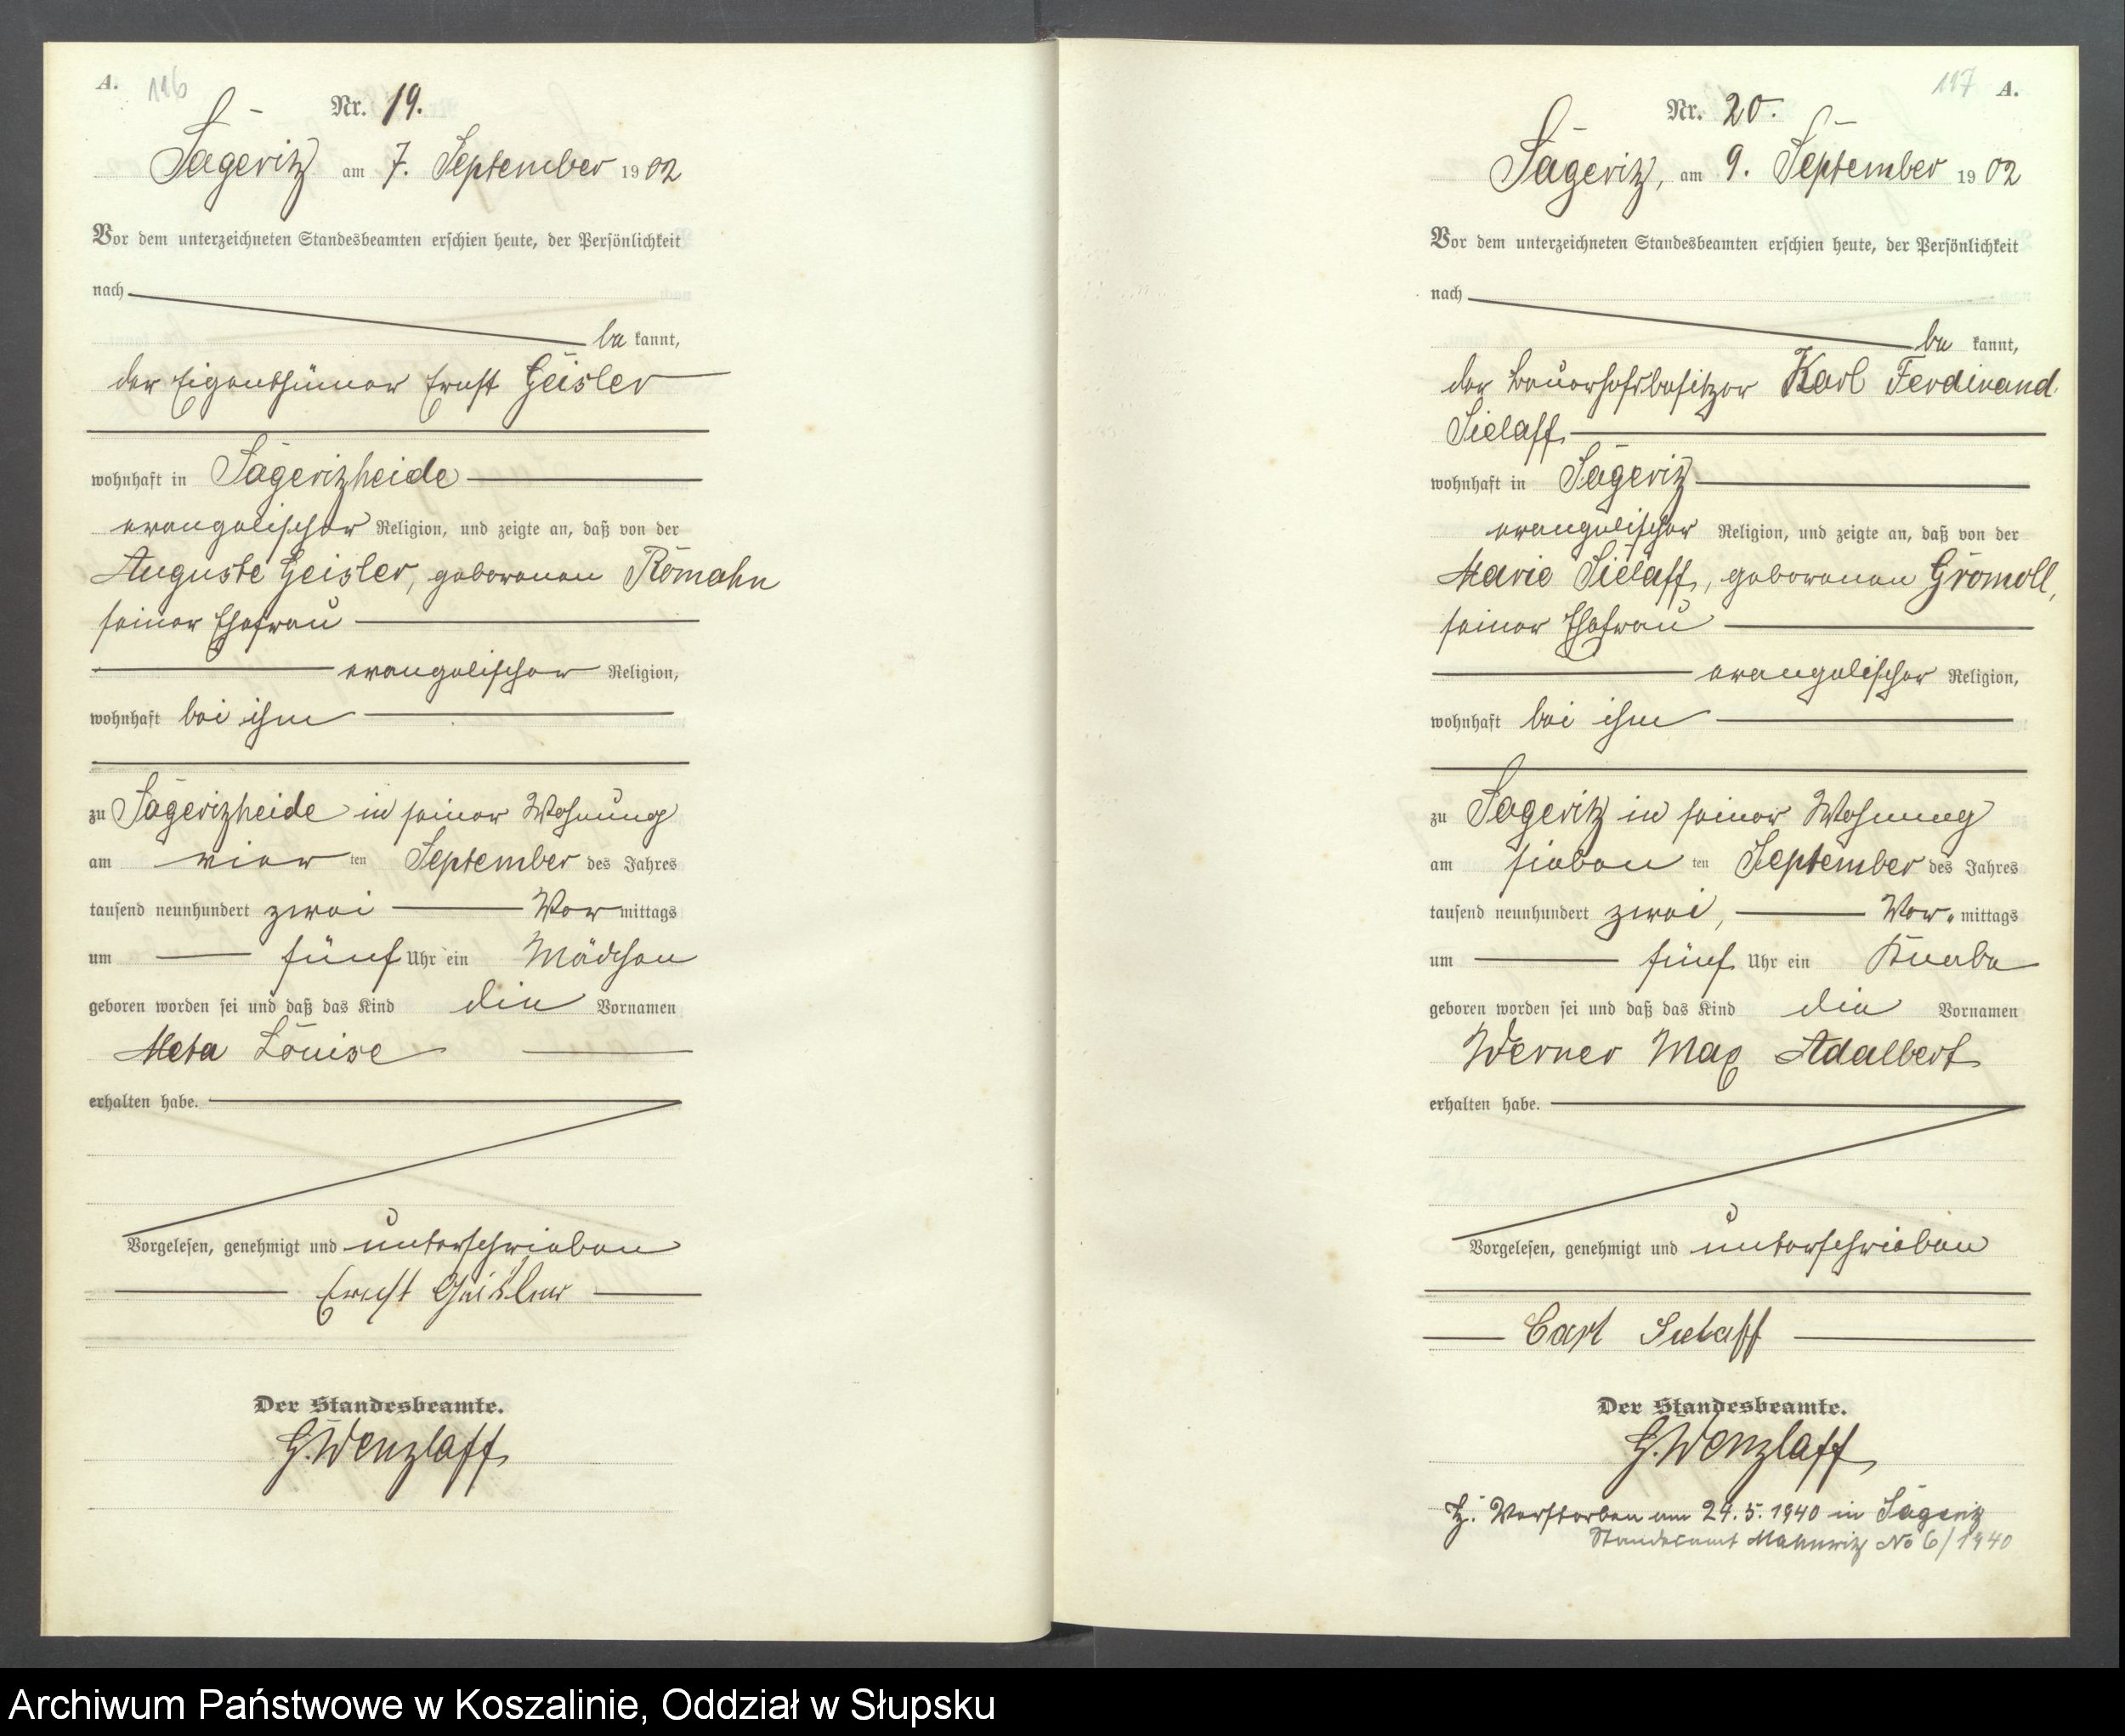 A.
116
Nr. 19.
Sageritz am 7. September 1902
Vor dem unterzeichneten Standesbeamten erschien heute, der Persönlichkeit
nach
be kannt,
der Eigenthümer Ernst Geisler
wohnhaft in Sageritzheide
evangelischer Religion, und zeigte an, daß von der
Auguste Geisler, geborenen Römahn
seiner Ehefrau
evangelischer Religion,
wohnhaft bei ihm
zu Sageritzheide in seiner Wohnung
am vier ten September des Jahres
tausend neunhundert zwei Vor mittags
um fünf Uhr ein Mädchen
geboren worden sei und daß das Kind die Vornamen
Meta Louise
erhalten habe.
Vorgelesen, genehmigt und unterschrieben
Ernst Geisler
Der Standesbeamte.
G. Wenzlaff
117 A.
Nr. 20.
Sageritz, am 9. September 1902
Vor dem unterzeichneten Standesbeamten erschien heute, der Persönlichkeit
nach
be kannt,
der Bauerhofsbesitzer Karl Ferdinand
Sielaff
wohnhaft in Sageritz
evangelischer Religion, und zeigte an, daß von der
Marie Sielaff, geborenen Gromoll,
seiner Ehefrau
evangelischer Religion,
wohnhaft bei ihm
zu Sageritz in seiner Wohnung
am sieben ten September des Jahres
tausend neunhundert zwei, Vor mittags
um fünf Uhr ein Knabe
geboren worden sei und daß das Kind die Vornamen
Werner Max Adalbert
erhalten habe.
Vorgelesen, genehmigt und unterschrieben
Carl Sielaff
Der Standesbeamte.
G. Wenzlaff
Verstorben am 24.5.1940 in Sageritz
Standesamt Mahnwitz No 6/1940
Archiwum Państwowe w Koszalinie, Oddział w Słupsku